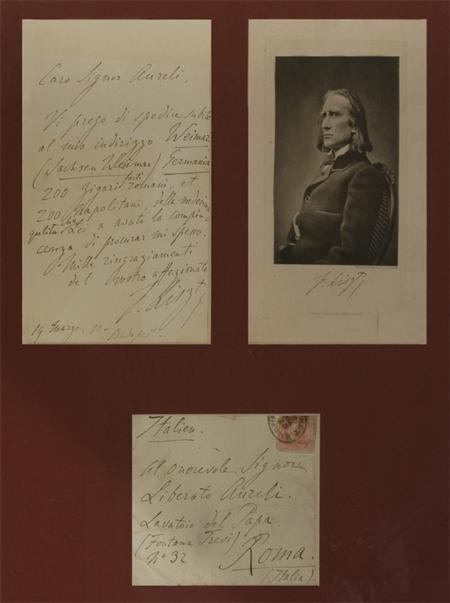 Caro Signor Aureli,
Vi prego di spedire subito
al mio indirizzo Weimar
(Sachsen Weimar) Germania
200 Zigari forti romani, et
200 Napolitani, della medesima
qualità che Lei a avuto la compia-
cenza di procurarmi spesso.
Mille ringraziamenti
del Vostro affezionato
F. Liszt
19 Marzo, 80.
Budapest.
F. Liszt
Italien.
Al onorevole Signore
Liberato Aureli.
Lavatoio del Papa
(Fontana Trevi)
No 32
Roma.
(Italia)